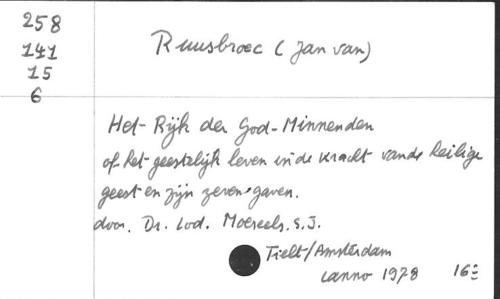 258
141
15
6
Ruusbroec (Jan van)
Het Rijk der God-Minnenden
of het geestelijk leven in de kracht vande heilige
geest en zijn zeven gaven.
door. Dr. Lod. Moereels. S.J.
Tielt/Amsterdam
Lanno 1978 16=